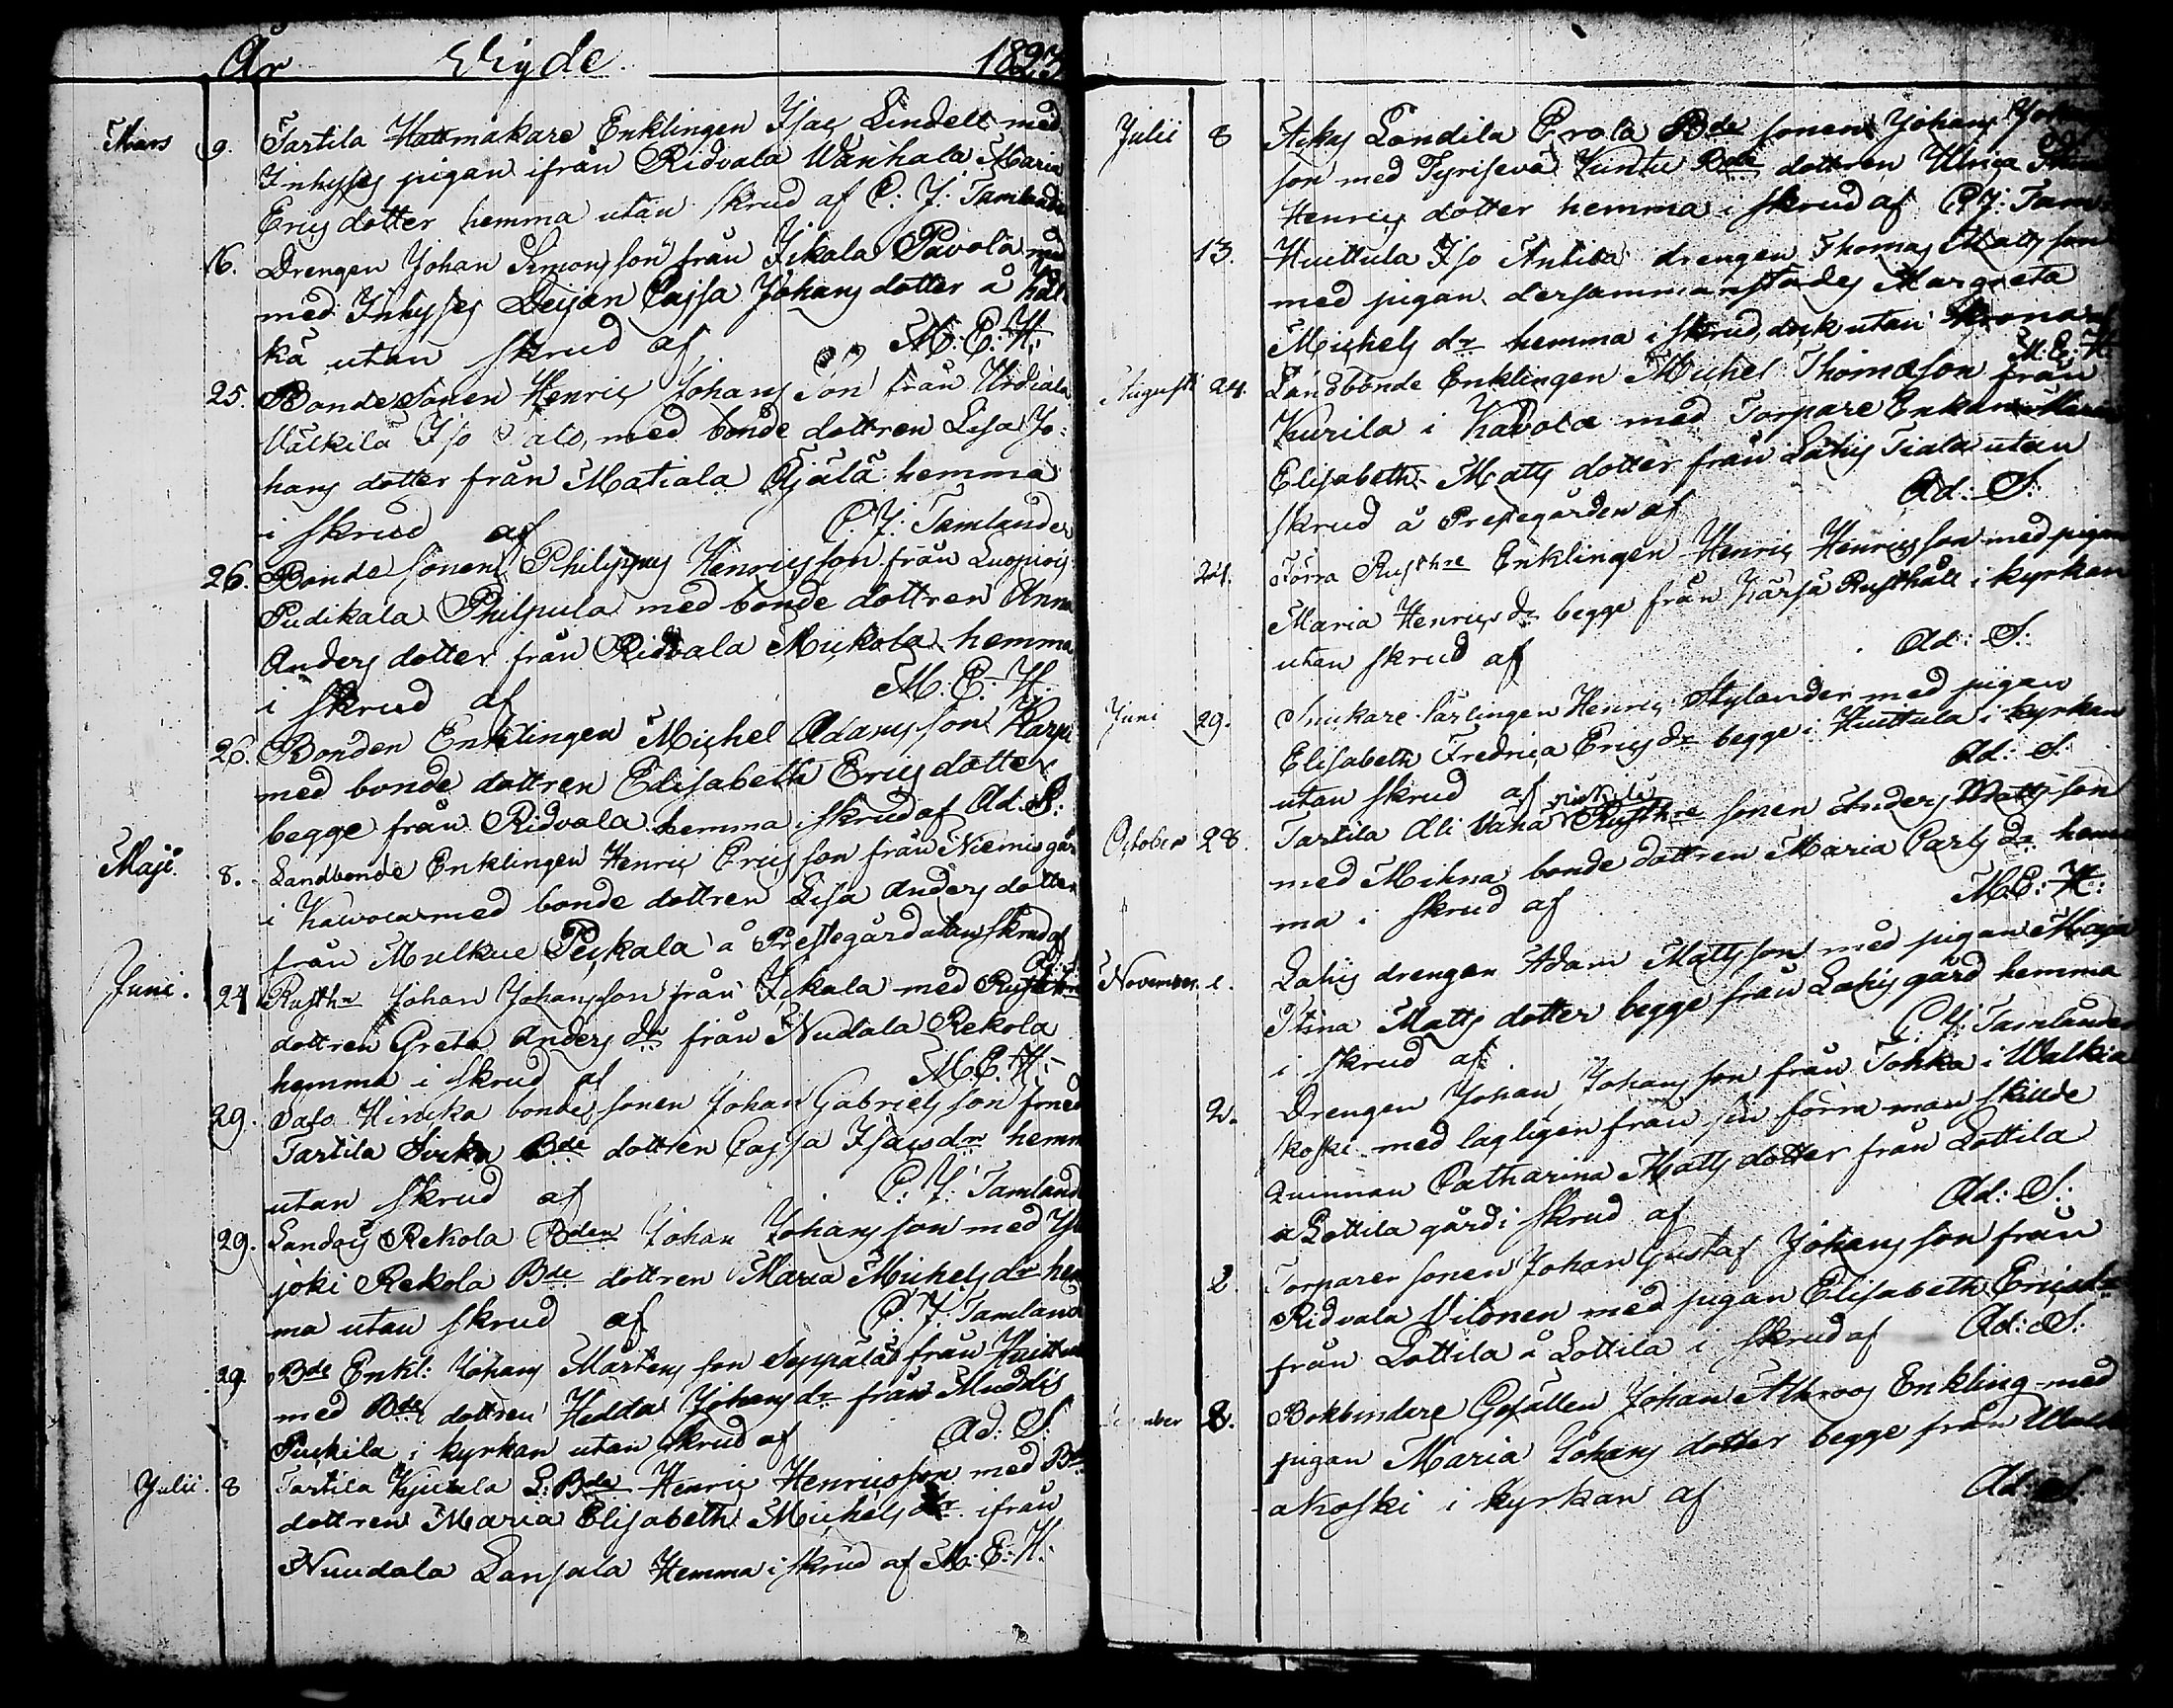 År Vigde 1823
Mars 9. Tartila Hattmakare Enklingen Isac Lindell med
Inhyses pigan ifrån Ridvala Wänhala Maria
Erics dotter hemma utan skrud af C: J: Tamlander
16. Drengen Johan Simons son från Ickala Pavola
med Inhyses Deijan Cajsa Johans dotter å
kä utan skrud af M: E: H:
25. Bonde Sonen Henric Johans Son från Urdiala
Välkilä Iso Talo, med bonde dottren Lisa Jo:
hans dotter från Matiala Äijälä hemma
i skrud af C: J: Tamlander
26. Bonde sonen Philippus Henricsson från Luopiois
Pudikala Philpula med bonde dottren Anna
Anders dotter från Ridvala Mickola hemma
i skrud af M. E: H.
26. Bonden Enklingen Michel Adamsson
med bonde dottren Elisabeth Erics dotter
begge från Ridvala hemma i skrud af Ad: S:
Maji. 8. Landbonde Enklingen Henric Ericsson från Niemis gård
i Kawola med bonde dottren Lisa Anders dotter
från Mulkue Peckala å Prestegård utan skrud af
Ad: S:
Juni. 24 Rusthr Johan Johansson från Ickala med Rusthre
dottren Greta Anders dr från Nudala Rekola
hemma i skrud af M: E: H:
29. Salo Hincka bonde sonen Johan Gabriels son med
Tartila Sirku Bde dottren Cajsa Isacsdr hemm
utan skrud af C: J: Tamland
29. Sandois Rekola Bden Johan Johansson med
joki Rekola Bde dottren Maria Michels dr hem
ma utan skrud af C. J. Tamland
29 Bde Enkl: Johans Mårtens son Seppälä från Huittula
med Bde dottren Hedda Johans dr från Muddis
Puckila i kyrkan utan skrud af Ad: S:
Julii. 8 Tartila L: Bde Henric Henricsson med Bde
dottren Maria Elisabeth Michels dr ifrån
Nuudala Lansala Hemma i skrud af M: E: H:
Julii 8 Ackas Landila Erola Bde sonen Johans
son med Tyrisevä Kuntu Bde dottren Ulrica
Henrics dotter hemma i skrud af C: J: Tam:
13. Huittula Iso Antila drengen Thomas Matts son
med pigan dersammanstädes Margreta
Michels dr hemma i skrud, dock utan krona af
M: E: H
Augusti 24. Landbonde Enklingen Michel Thomasson från
Kurila i Kavola med Torpare Enkan Maria
Elisabeth Matts dotter från Lahis Tiala utan
skrud å Prestegården af Ad: S:
24. Förra Rusthre Enklingen Henric Henricsson med pigan
Maria Henrics dr begge från Kärsä Rusthåll i kyrkan
utan skrud af Ad: S:
Juni 29. Snickare lärlingen Henric Skylander med pigan
Elisabeth Fredrica Erics dr begge i Huittula i kyrkan
utan skrud af Ad: S:
October 28. Tartila Ali Vähä Rusthre sonen Anders Matts son
med Mihna bonde dottren Maria Carls dr hem
ma i skrud af M: E: H:
November 1. Lahis drengen Adam Mattsson med pigan Maja
Stina Matts dotter begge från Lahis gård hemma
i skrud af C. J: Tamlander
2. Drengen Johan Johansson från Tohka i Walkia
koski med lagligen från sin förra man skillde
quinnan Catharina Matts dotter från Lottila
å Lottila gård i skrud af Ad: S:
2. Torpare sonen Johan Gustaf Johans son från
Ridvala Vilonen med pigan Elisabeth Ericsdr
från Lottila å Lottila i skrud af Ad: S:
8. Bokbindare Gesällen Johan Ahlroos Enkling med
pigan Maria Johans dotter begge från
akoski i kyrkan af Ad: S.